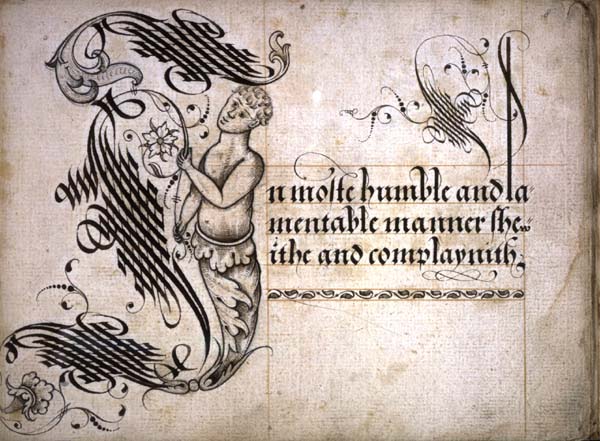 In moste humble and la-
mentable manner she..
ithe and complaynith